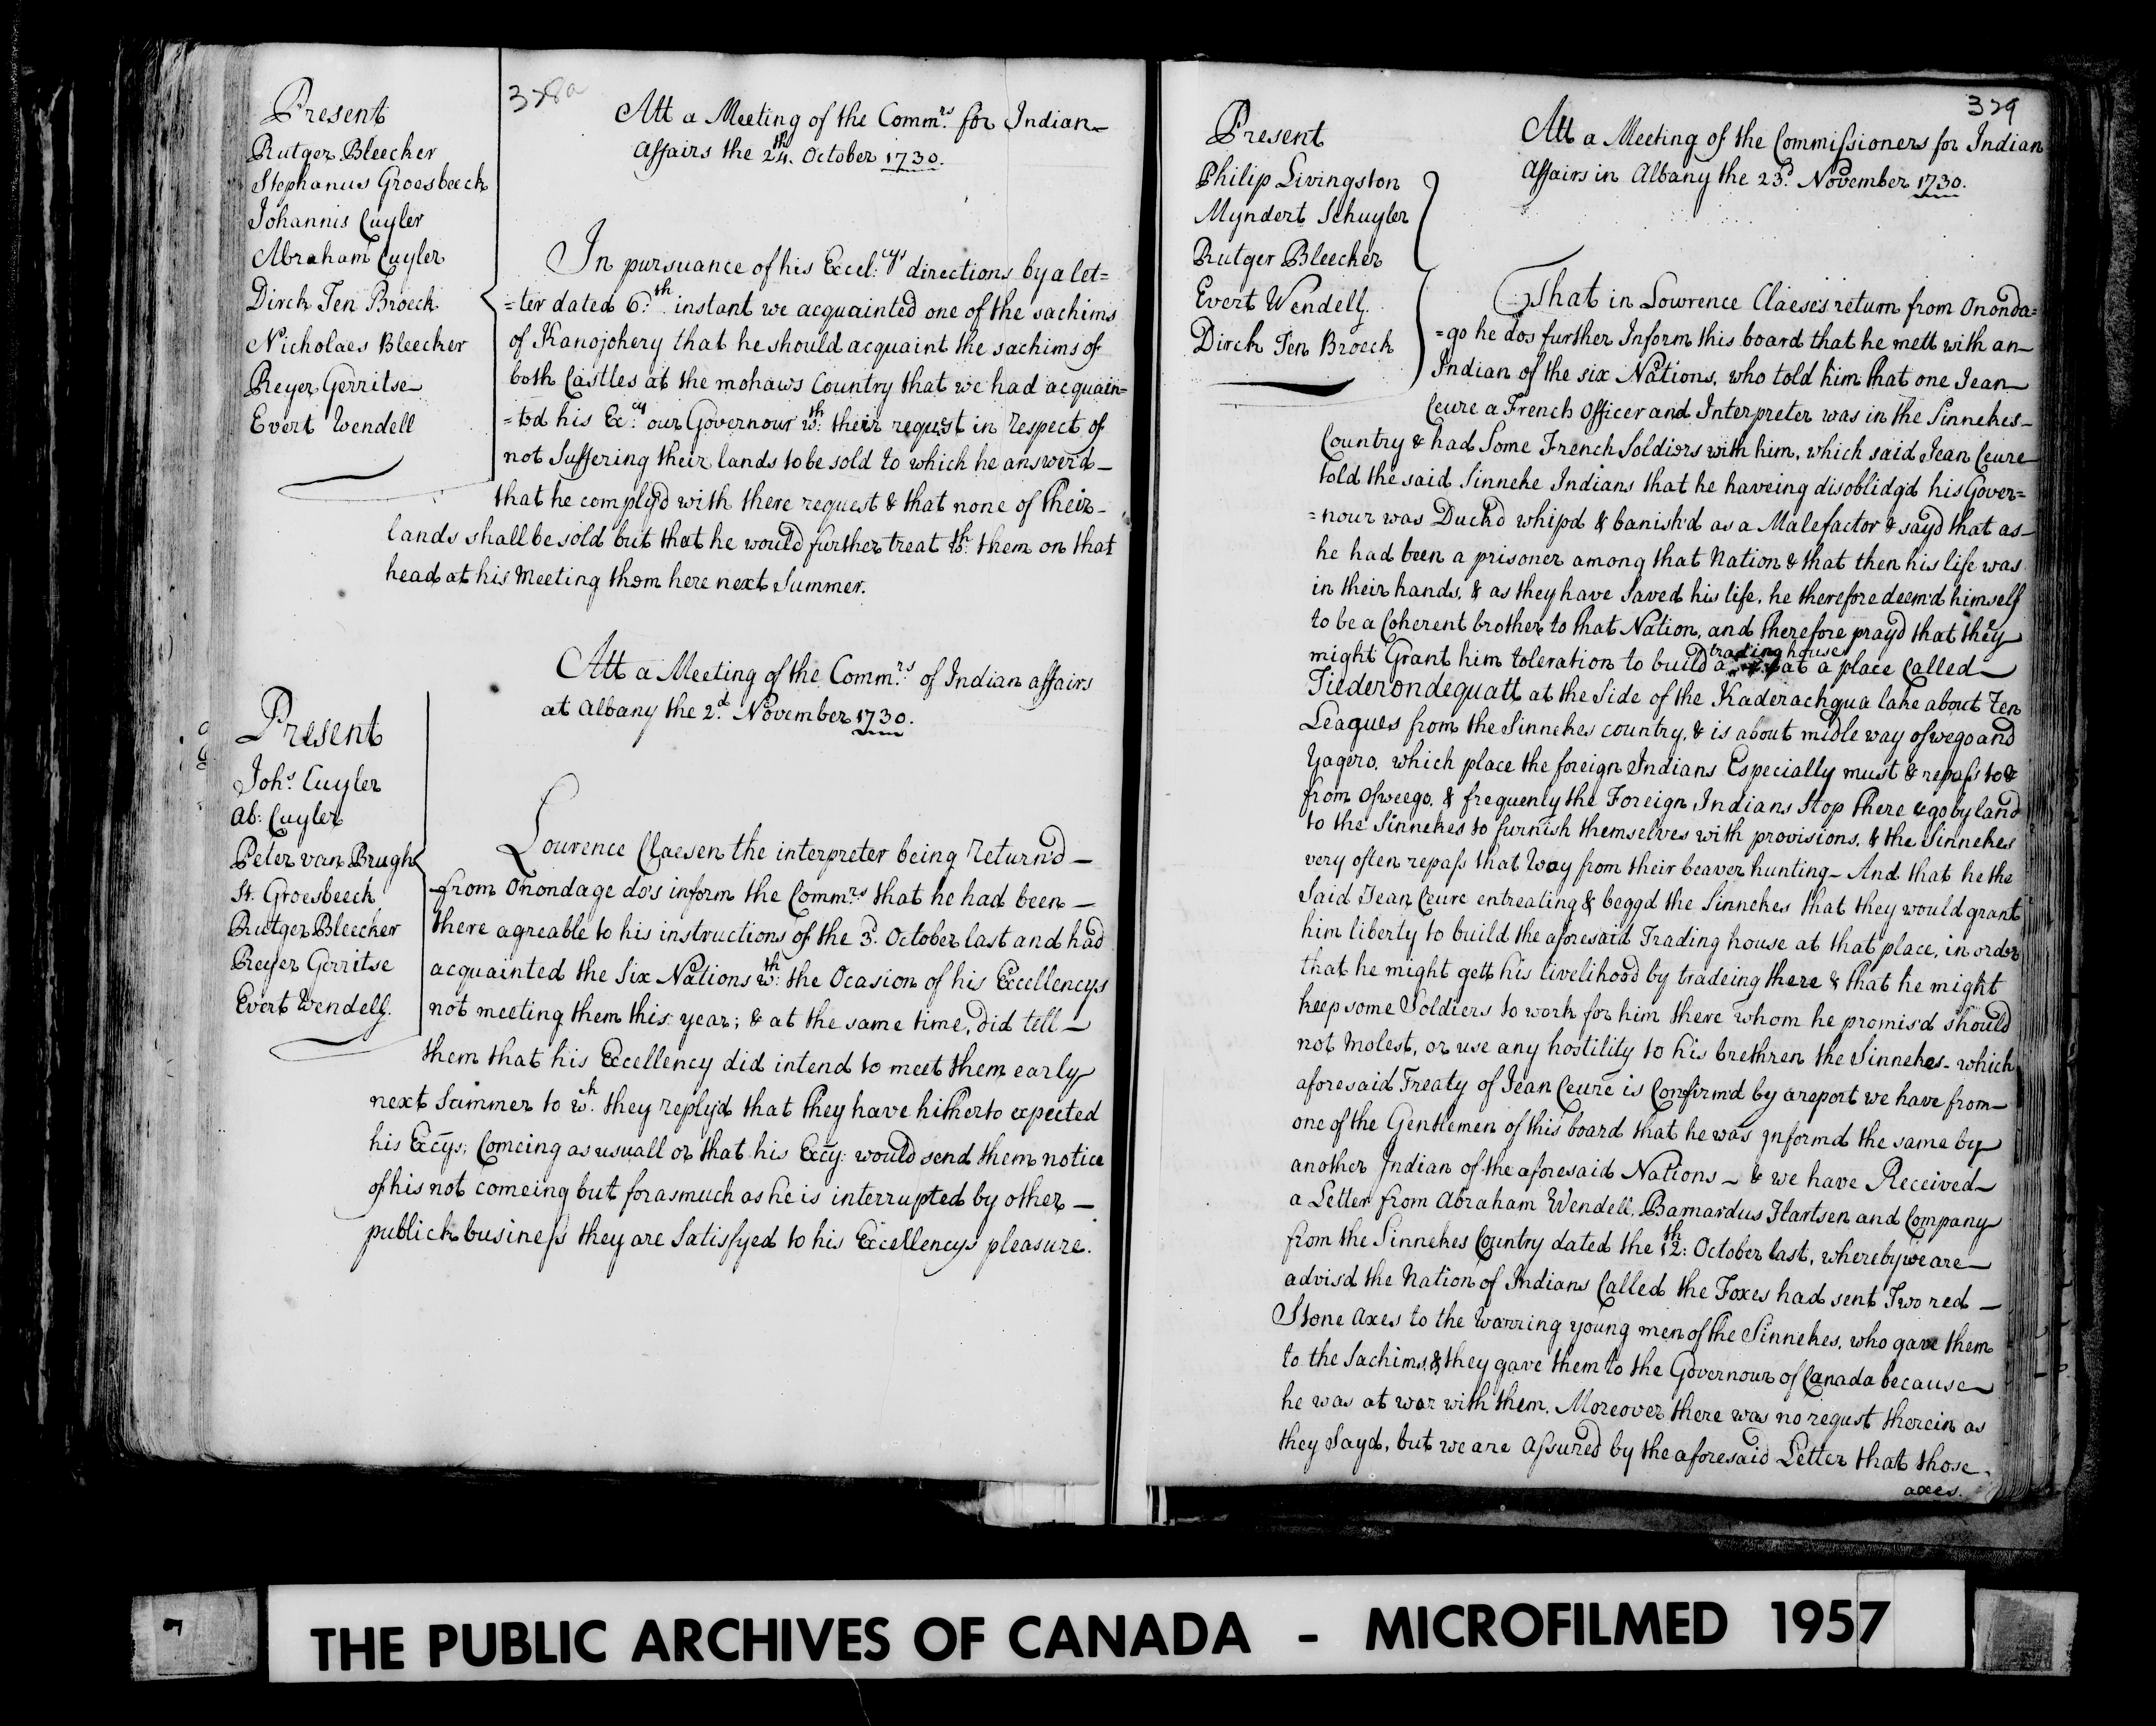 328a
Present
Rutger Bleecker
Stephanus Groesbeeck
Johannis Cuyler
Abraham Cuyler
Dirck Ten Broeck
Nicholaes Bleecker
Reyer Gerritse
Evert Wendell
Att a Meeting of the Commrs. for Indian
affairs the 24th. October 1730.
In pursuance of his Excel:cys directions by a let=
=ter dated 6th. instant we acquainted one of the sachims
of Kanojohery that he should acquaint the sachims of
both Castles at the mohaws Country that we had acquain=
=ted his Excy. our Governour wth: their request in respect of
not Suffering their lands to be sold to which he answerd
that he complyd with there request & that none of their
lands shall be sold but that he would further treat wth. them on that
head at his Meeting them here next Summer.
Att a Meeting of the Commrs. of Indian affairs
at albany the 2d. November 1730.
Present
Johs. Cuyler
ab: Cuyler
Peter van Brugh
St. Groesbeeck
Rutger Bleecker
Reyer Gerritse
Evert Wendell.
Lourence Claesen the interpreter being Return'd
from Onondage do's inform the Commrs. that he had been
there agreable to his instructions of the 3d. October last and had
acquainted the Six Nations wth: the Ocasion of his Excellencys
not meeting them this year; & at the same time, did tell
them that his Excellency did intend to meet them early
next Summer to wh. they reply'd that they have hitherto expected
his Excys; Comeing as usuall or that his Excy: would send them notice
of his not comeing but forasmuch as he is interrupted by other
publick business they are Satisfyed to his Excellencys pleasure.
329
Present
Philip Livingston
Myndert Schuyler
Rutger Bleecker
Evert Wendell.
Dirck Ten Broeck
Att a Meeting of the Commissioners for Indian
Affairs in Albany the 23d. November 1730.
That in Lowrence Claese's return from Ononda=
=go he dos further Inform this board that he mett with an
Indian of the six Nations, who told him that one Jean
Ceure a French Officer and Interpreter was in the Sinnekes
Country & had Some French Soldiers with him, which said Jean Ceure
told the said Sinneke Indians that he haveing disoblidg'd his Gover=
=nour was Duck'd whip'd & banish'd as a Malefactor & sayd that as
he had been a prisoner among that Nation & that then his life was
in their hands, & as they have Saved his life, he therefore deem'd himself
to be a Coherent brother to that Nation, and therefore prayd that they
might Grant him toleration to build a trading house at a place Called
Tiederondequatt at the Side of the Kaderachqua lake about Ten
Leagues from the Sinnekes country, & is about midle way oswego and
Yagero, which place the foreign Indians Especially must & repass to &
from Osweego, & frequently the Foreign Indians Stop there & go by land
to the Sinnekes to furnish themselves with provisions, & the Sinnekes
very often repass that Way from their beaver hunting - And that he the
Said Jean Ceure entreating & beggd the Sinnekes that they would grant
him liberty to build the aforesaid Trading house at that place, in order
that he might gett his livelihood by tradeing there & that he might
keep some Soldiers to work for him there whom he promis'd should
not Molest, or use any hostility to his brethren the Sinnekes - which
aforesaid Treaty of Jean Ceure is Confirm'd by a report we have from
one of the Gentlemen of this board that he was Informd the same by
another Indian of the aforesaid Nations - & we have Received
a Letter from Abraham Wendell, Barnardus Hartsen and Company
from the Sinnekes Country dated the 12th: October last, whereby we are
advisd the Nation of Indians Called the Foxes had sent Two red
Stone axes to the Warring young men of the Sinnekes, who gave them
to the Sachims, & they gave them to the Governour of Canada because
he was at war with them. Moreover there was no requst therein as
they Sayd, but we are assured by the aforesaid Letter that those
axes.
THE PUBLIC ARCHIVES OF CANADA - MICROFILMED 1957